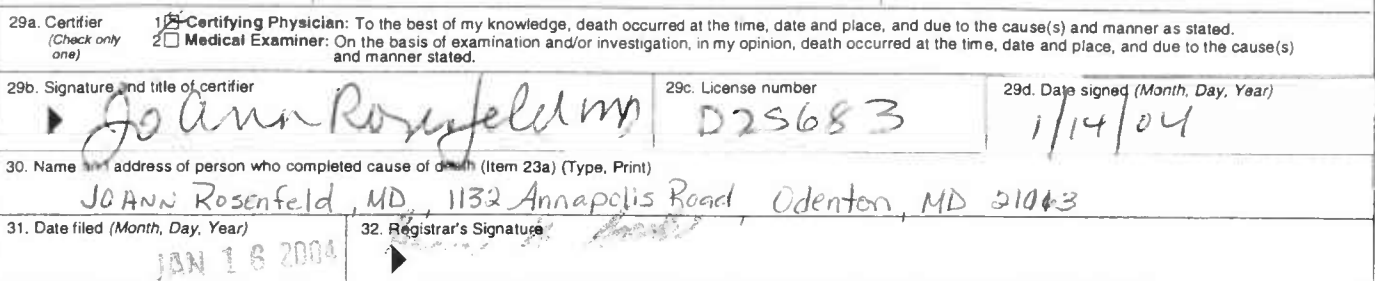 29a. Certifier 1☒ Certifying Physician: To the best of my knowledge, death occurred at the time, date and place, and due to the cause(s) and manner as stated.
(Check only one) 2☐ Medical Examiner: On the basis of examination and/or investigation, in my opinion, death occurred at the time, date and place, and due to the cause(s)
and manner stated.
29b. Signature and title of certifier 29c. License number 29d. Date signed (Month, Day, Year)
Jo Ann Rosenfeld MD D25683 1/14/04
30. Name and address of person who completed cause of death (Item 23a) (Type, Print)
JO ANN Rosenfeld, MD, 1132 Annapolis Road, Odenton, MD
31. Date filed (Month, Day, Year) 32. Registrar's Signature
JAN 16 2004